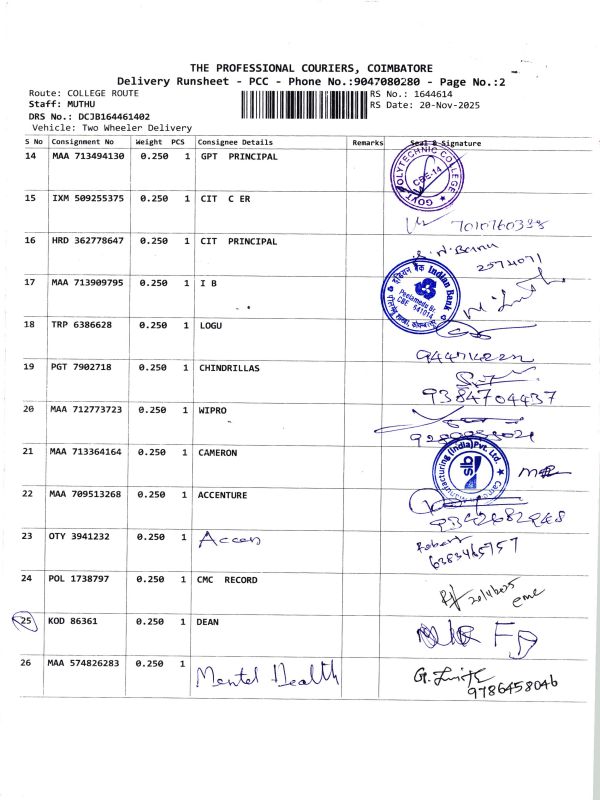 THE PROFESSIONAL COURIERS, COIMBATORE
Delivery Runsheet - PCC - Phone No.:9047080280 - Page No.:2
Route: COLLEGE ROUTE RS No.: 1644614
Staff: MUTHU RS Date: 20-Nov-2025
DRS No.: DCJB164461402
Vehicle: Two Wheeler Delivery
S No Consignment No Weight PCS Consignee Details Remarks Seal & Signature
14 MAA 713494130 0.250 1 GPT PRINCIPAL
GOVT POLYTECHNIC COLLEGE
CBE-14
15 IXM 509255375 0.250 1 CIT C ER
16 HRD 362778647 0.250 1 CIT PRINCIPAL
2574071
17 MAA 713909795 0.250 1 I B
इंडियन बैंक Indian Bank
Peelamedu Br.
CBE 641014
18 TRP 6386628 0.250 1 LOGU
19 PGT 7902718 0.250 1 CHINDRILLAS
9384704437
20 MAA 712773723 0.250 1 WIPRO
21 MAA 713364164 0.250 1 CAMERON
Manufacturing (India) Pvt. Ltd.
slb
22 MAA 709513268 0.250 1 ACCENTURE
23 OTY 3941232 0.250 1 Accen
Robert
6383465757
24 POL 1738797 0.250 1 CMC RECORD
25 KOD 86361 0.250 1 DEAN
26 MAA 574826283 0.250 1 Mental Health
9786458046